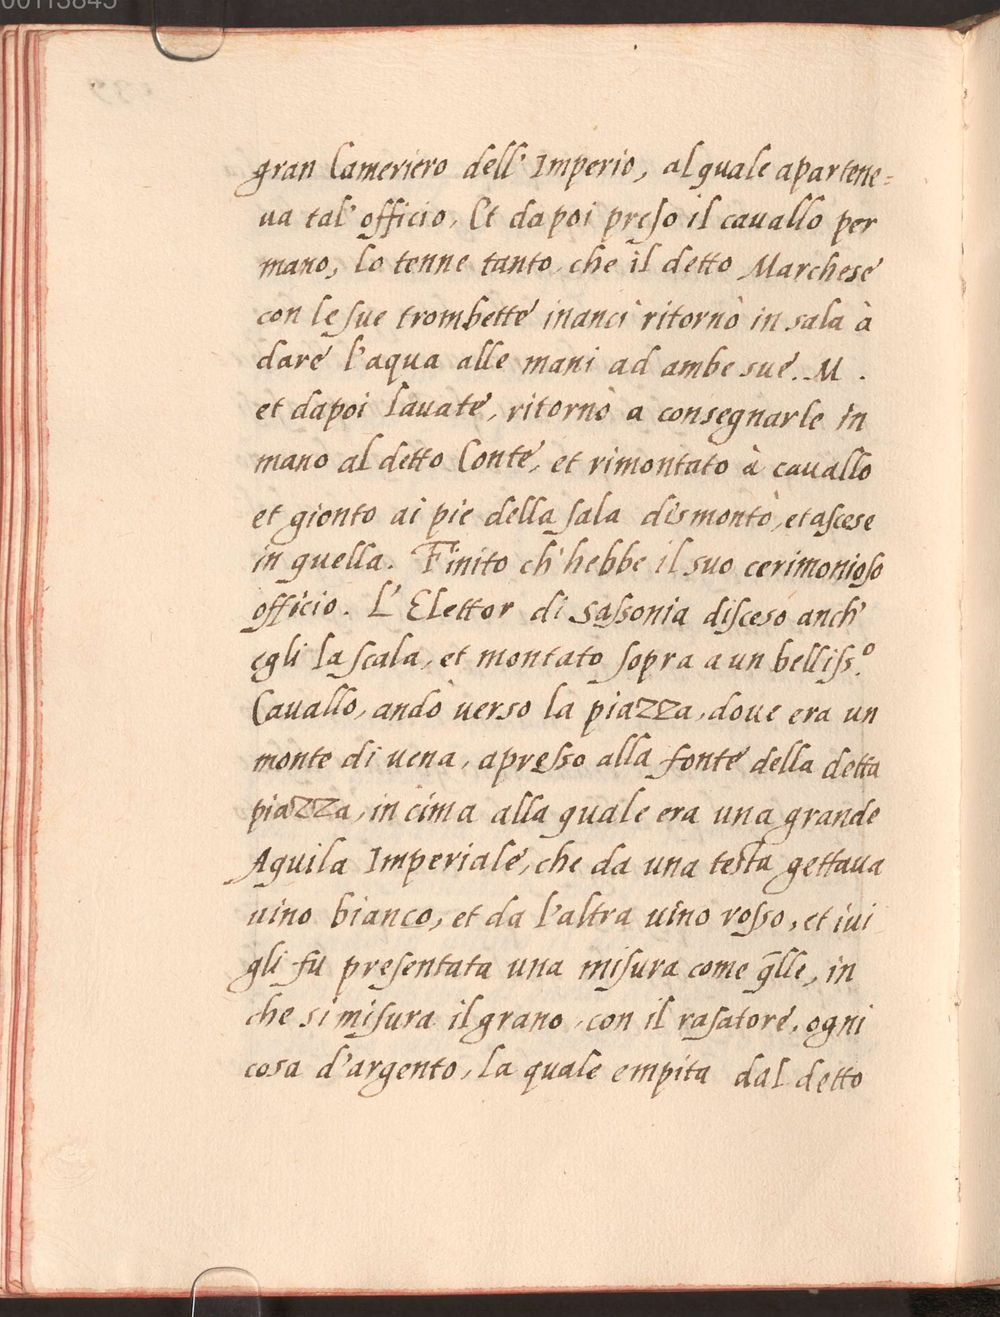 00113845
gran Cameriero dell' Imperio, al quale apartene=
ua tal' officio, Et dapoi preso il cauallo per
mano, lo tenne tanto, che il detto Marchese
con le sue trombette inanci ritornò in sala à
dare l'aqua alle mani ad ambe sue. M .
et dapoi lauate, ritornò a consegnarle in
mano al detto Conte, et rimontato à cauallo
et gionto ai pie della sala dismontò, et ascese
in quella. Finito ch'hebbe il suo cerimonioso
officio. L'Elettor di Sassonia disceso anch'
egli la scala, et montato sopra a un belliss.º
Cauallo, andò uerso la piazza, doue era un
monte di uena, apresso alla fonte della detta
piazza, in cima alla quale era una grande
Aquila Imperiale, che da una testa gettaua
uino bianco, et da l'altra uino rosso, et iui
gli fu presentata una misura come q̃lle, in
che si misura il grano, con il rasatore, ogni
cosa d'argento, la quale empita dal detto